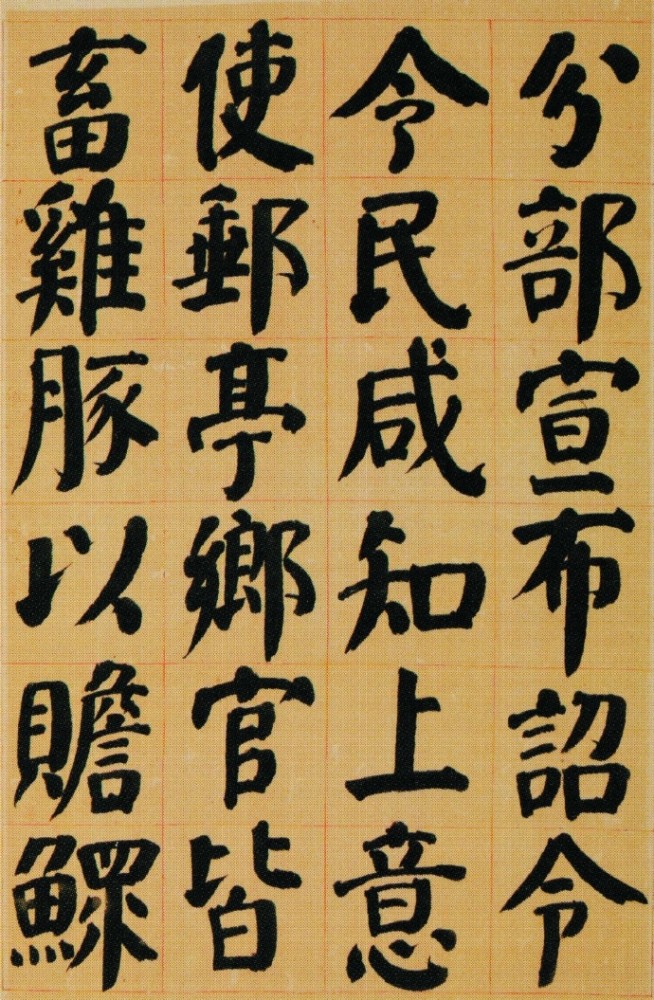 分部宣布詔令
令民咸知上意
使郵亭鄉官皆
畜雞豚以贍鰥